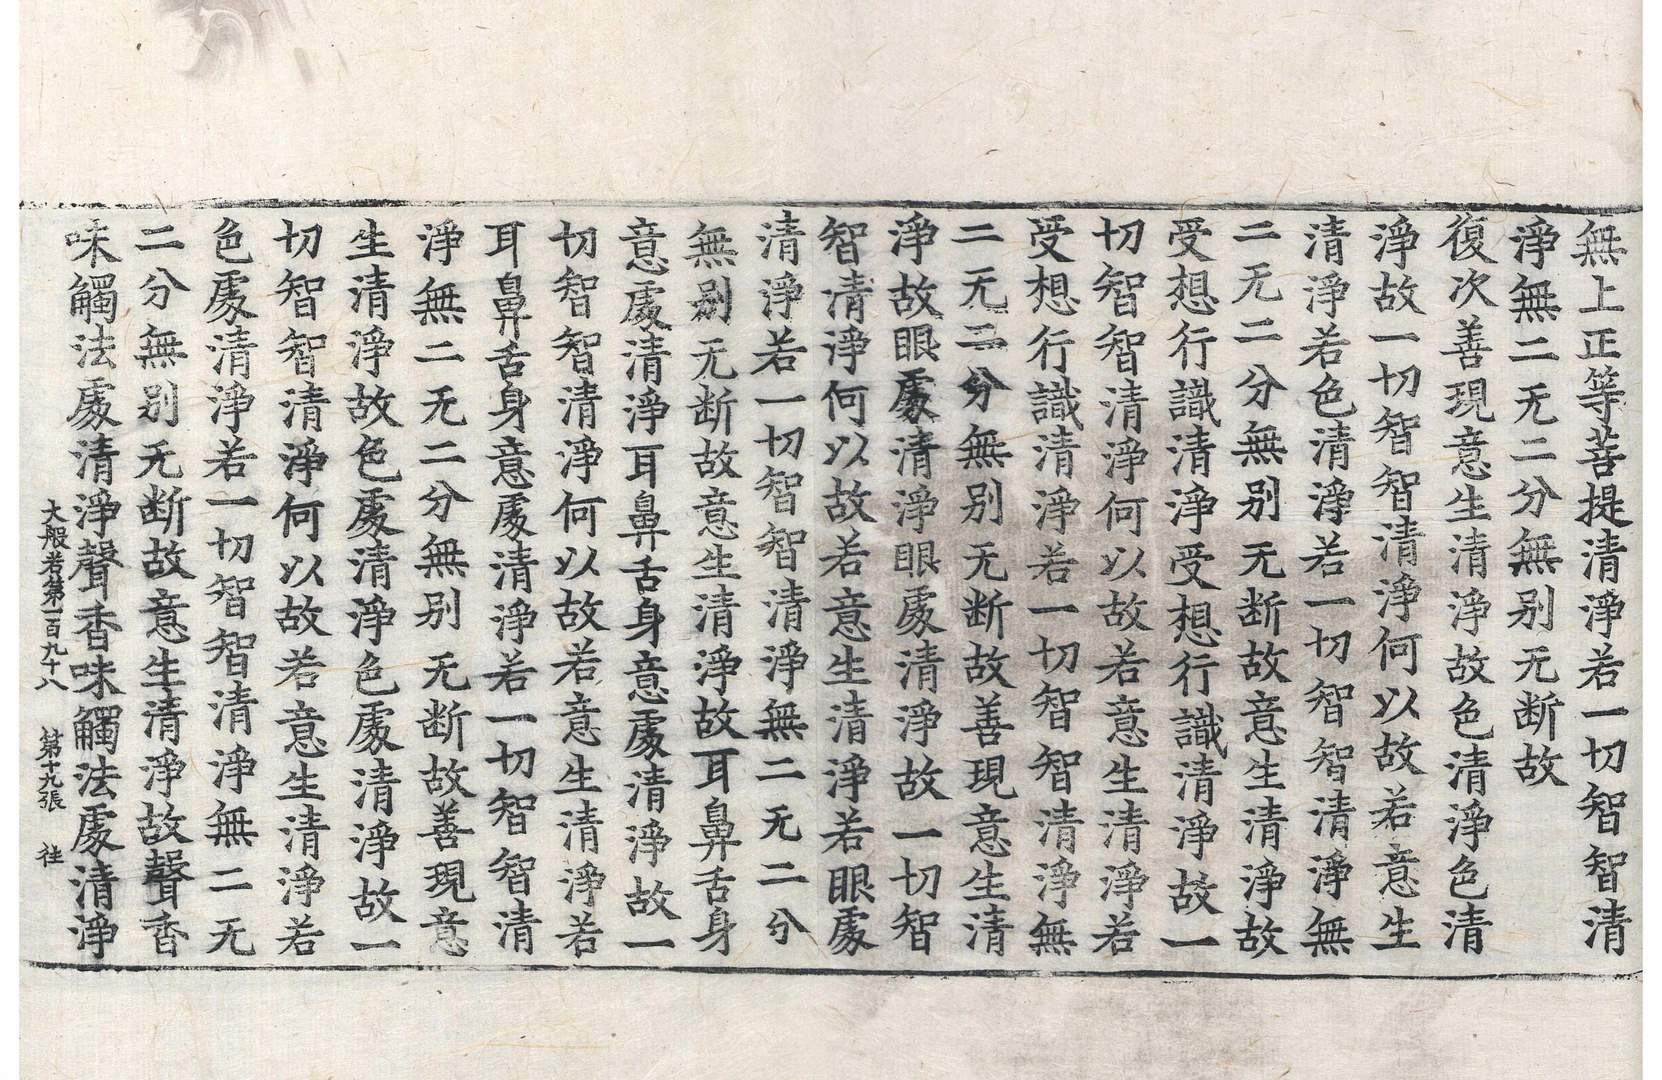 無上正等菩提清淨若一切智智清
淨無二无二分無别无断故
復次善現意生清淨故色清淨色清
淨故一切智智清淨何以故若意生
清淨若色清淨若一切智智清淨無
二无二分無别无断故意生清淨故
受想行識清淨受想行識清淨故一
切智智清淨何以故若意生清淨若
受想行識清淨若一切智智清淨無
二无二分無别无断故善現意生清
淨故眼處清淨眼處清淨故一切智
智清淨何以故若意生清淨若眼處
清淨若一切智智清淨無二无二分
無别无断故意生清淨故耳鼻舌身
意處清淨耳鼻舌身意處清淨故一
切智智清淨何以故若意生清淨若
耳鼻舌身意處清淨若一切智智清
淨無二无二分無别无断故善現意
生清淨故色處清淨色處清淨故一
切智智清淨何以故若意生清淨若
色處清淨若一切智智清淨無二无
二分無别无断故意生清淨故聲香
味觸法處清淨聲香味觸法處清淨
大般若第一百九十八 第十九張 往